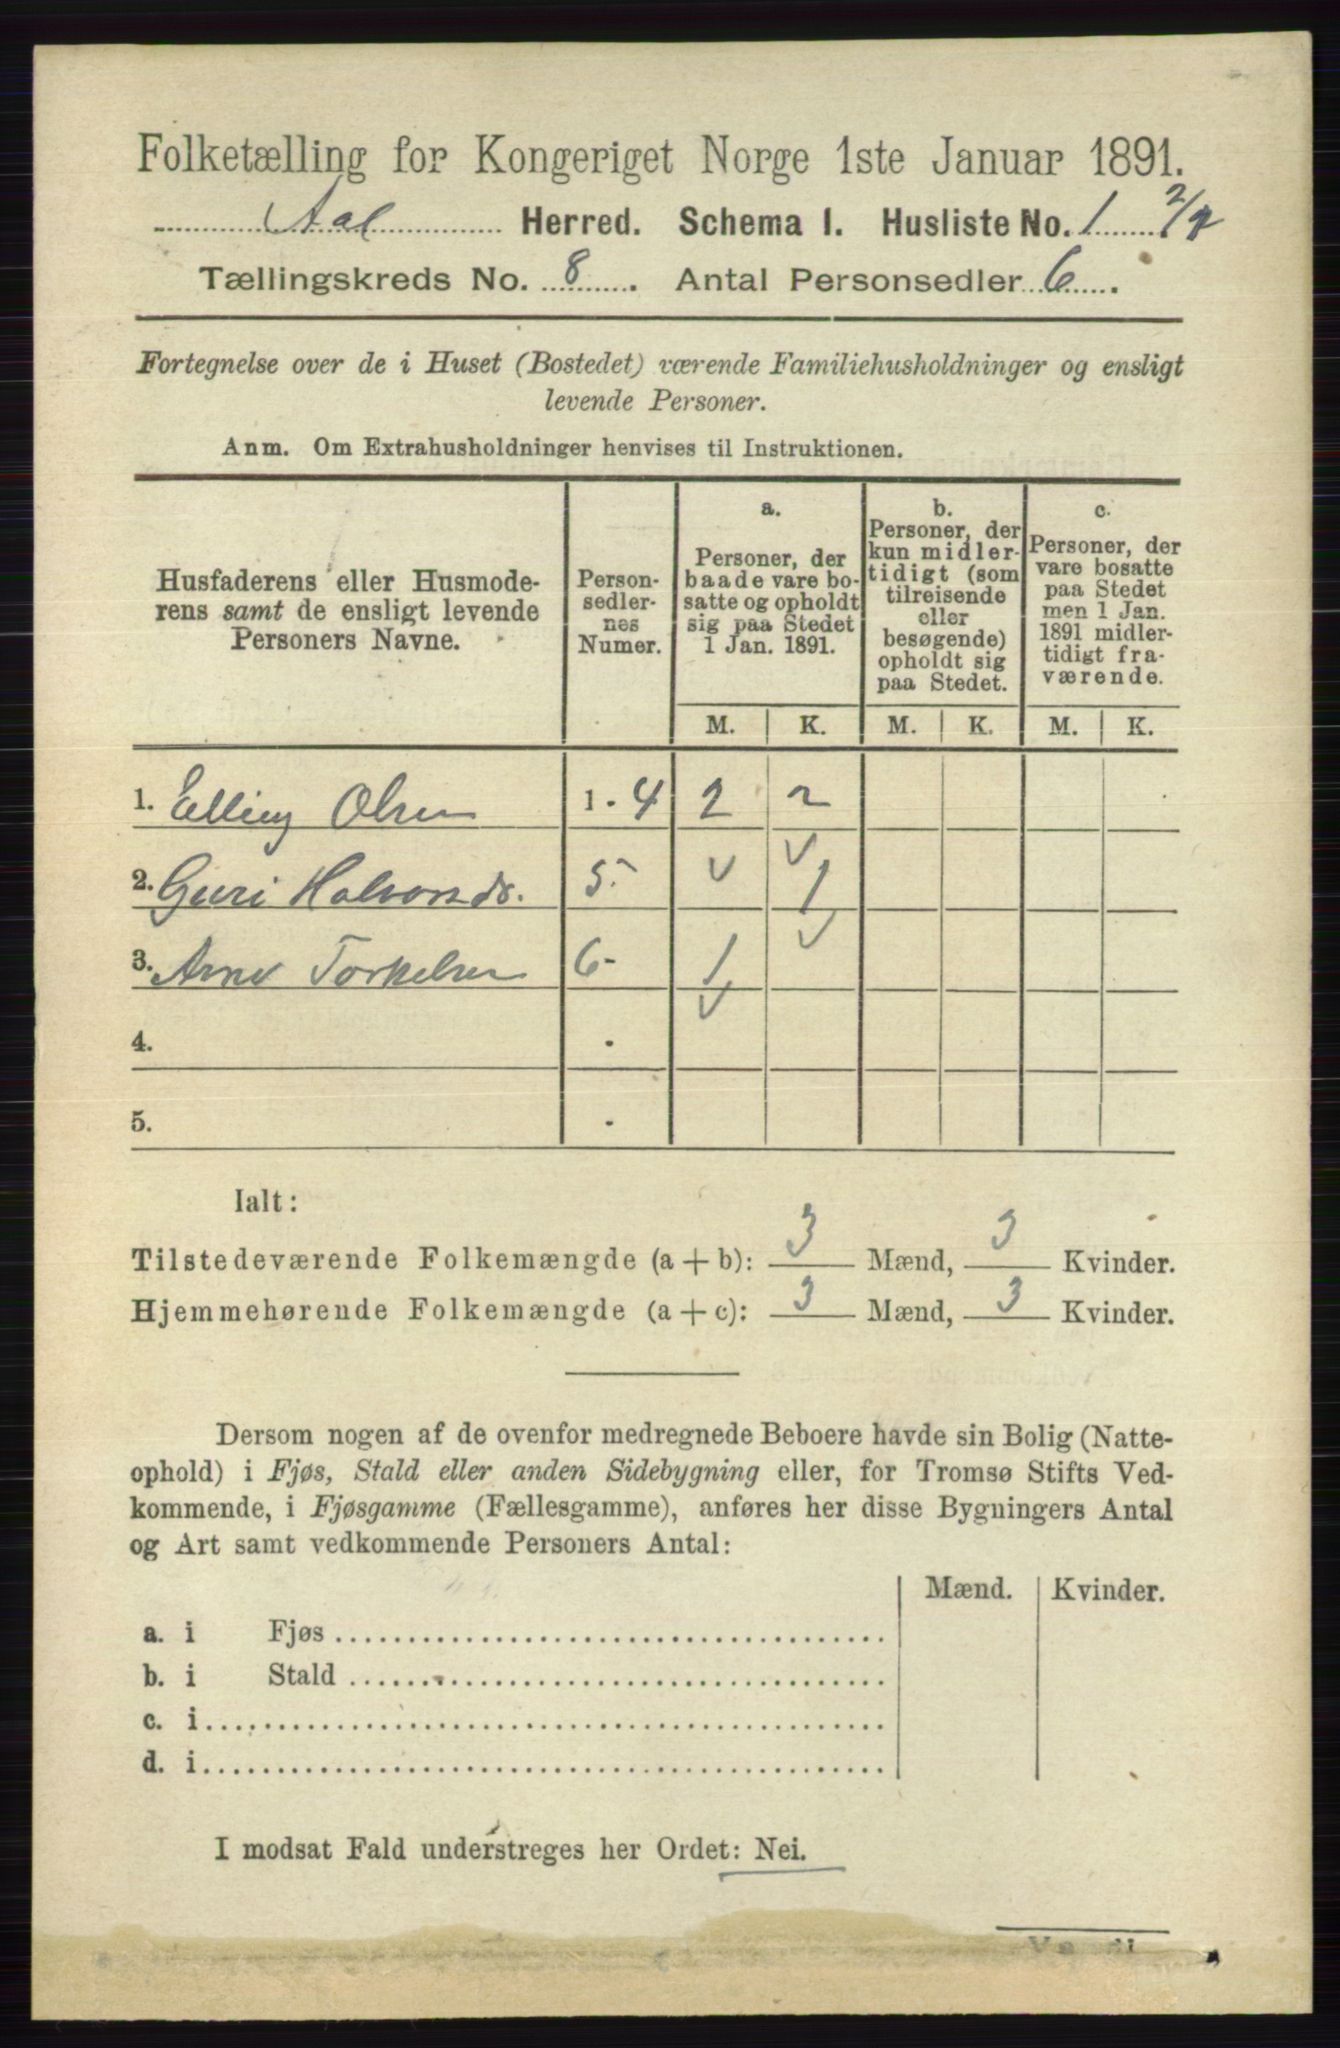 Folketælling for Kongeriget Norge 1ste Januar 1891.
Aal Herred. Schema I. Husliste No. 1
Tællingskreds No. 8. Antal Personsedler 6.
Fortegnelse over de i Huset (Bostedet) værende Familiehusholdninger og ensligt
levende Personer.
Anm. Om Extrahusholdninger henvises til Instruktionen.
Husfaderens eller Husmode-
rens samt de ensligt levende
Personers Navne.
Person-
sedler-
nes
Numer.
a.
Personer, der
baade vare bo-
satte og opholdt
sig paa Stedet
1 Jan. 1891.
b.
Personer, der
kun midler-
tidigt (som
tilreisende
eller
besøgende)
opholdt sig
paa Stedet.
c.
Personer, der
vare bosatte
paa Stedet
men 1 Jan.
1891 midler-
tidigt fra-
værende.
M. K. M. K. M. K.
1. Elling Olsen 1 - 4 2 2
2. Guri Halvorsds. 5 - 1
3. Arne Torkelsen 6 - 1
4. -
5. -
Ialt:
Tilstedeværende Folkemængde (a + b): 3 Mænd, 3 Kvinder.
Hjemmehørende Folkemængde (a + c): 3 Mænd, 3 Kvinder.
Dersom nogen af de ovenfor medregnede Beboere havde sin Bolig (Natte-
ophold) i Fjøs, Stald eller anden Sidebygning eller, for Tromsø Stifts Ved-
kommende, i Fjøsgamme (Fællesgamme), anføres her disse Bygningers Antal
og Art samt vedkommende Personers Antal:
Mænd. Kvinder.
a. i Fjøs
b. i Stald
c. i
d. i
I modsat Fald understreges her Ordet: Nei.